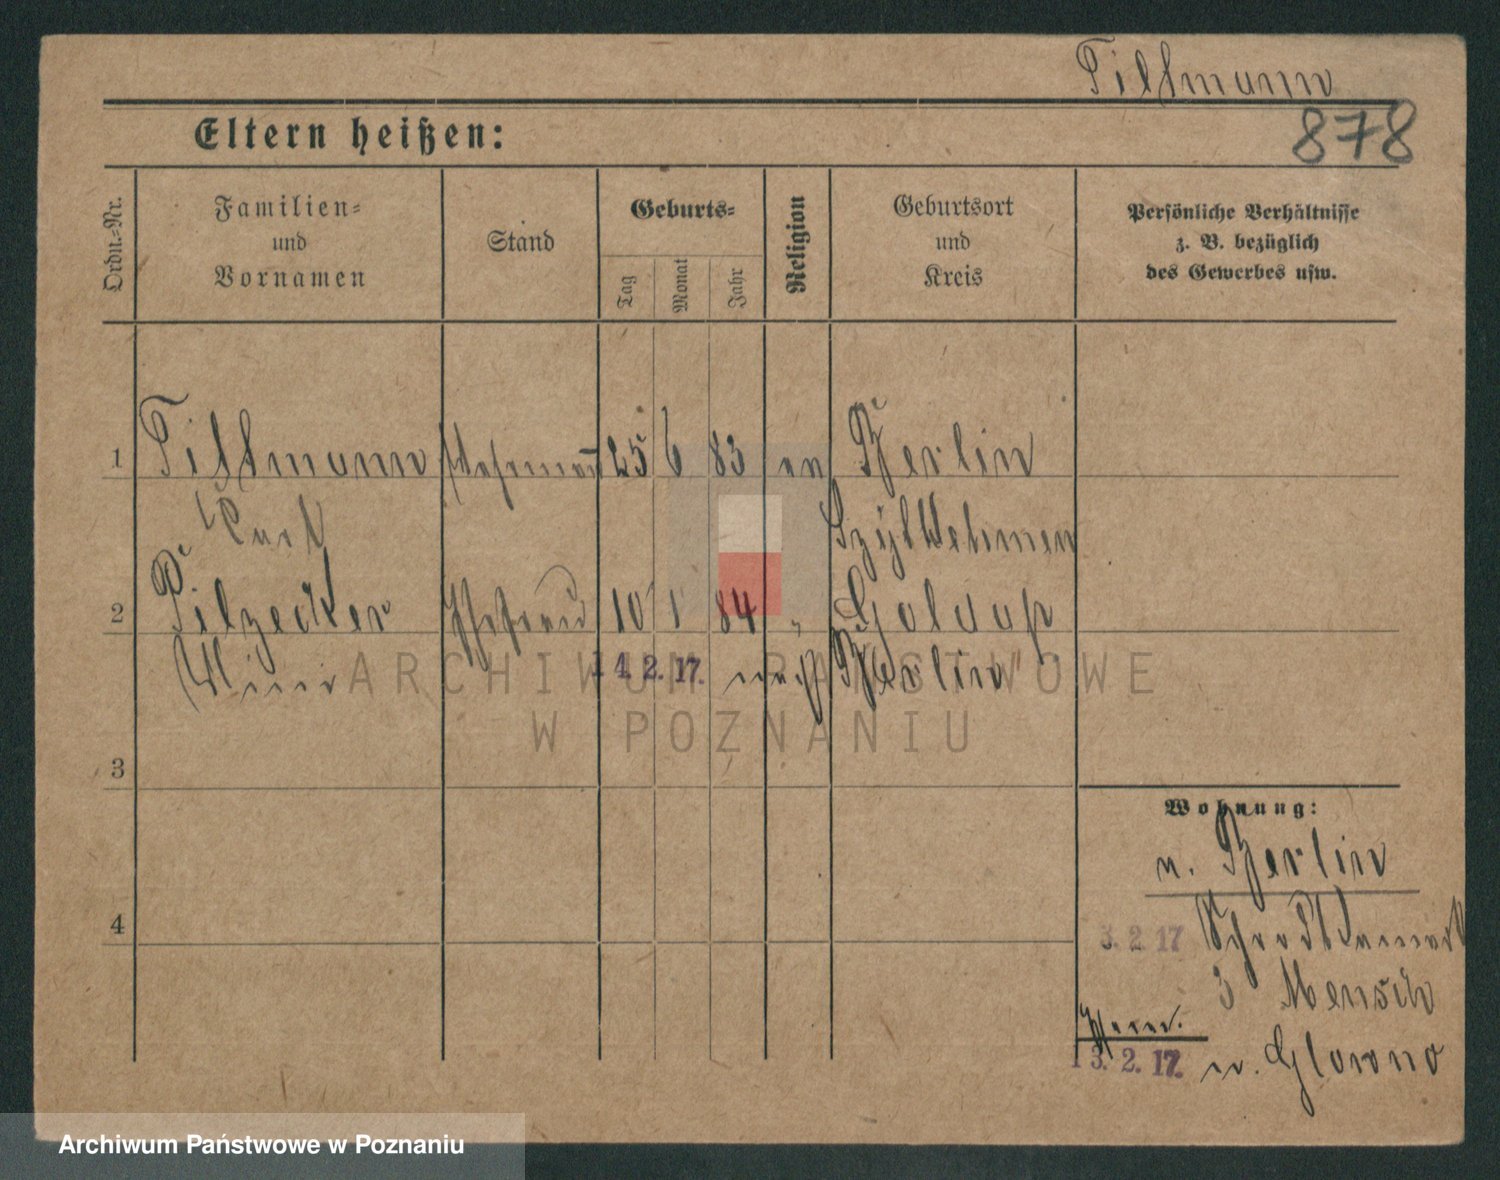 Tillmann
878
Eltern heißen:
Ordn.-Nr.
Familien- und Vornamen
Stand
Geburts-
Tag
Monat
Jahr
Religion
Geburtsort und Kreis
Persönliche Verhältnisse
z. B. bezüglich
des Gewerbes usw.
1 Tillmann 25 6 83 ev Berlin
Curt
2 Pilzecker Ehefrau 10 1 84 " Goldap
14.2.17. nach Berlin
ARCHIWUM PAŃSTWOWE
W POZNANIU
3
4
Wohnung:
v. Berlin
3.2.17
3 Mensch
13.2.17. n. Glowno
Archiwum Państwowe w Poznaniu